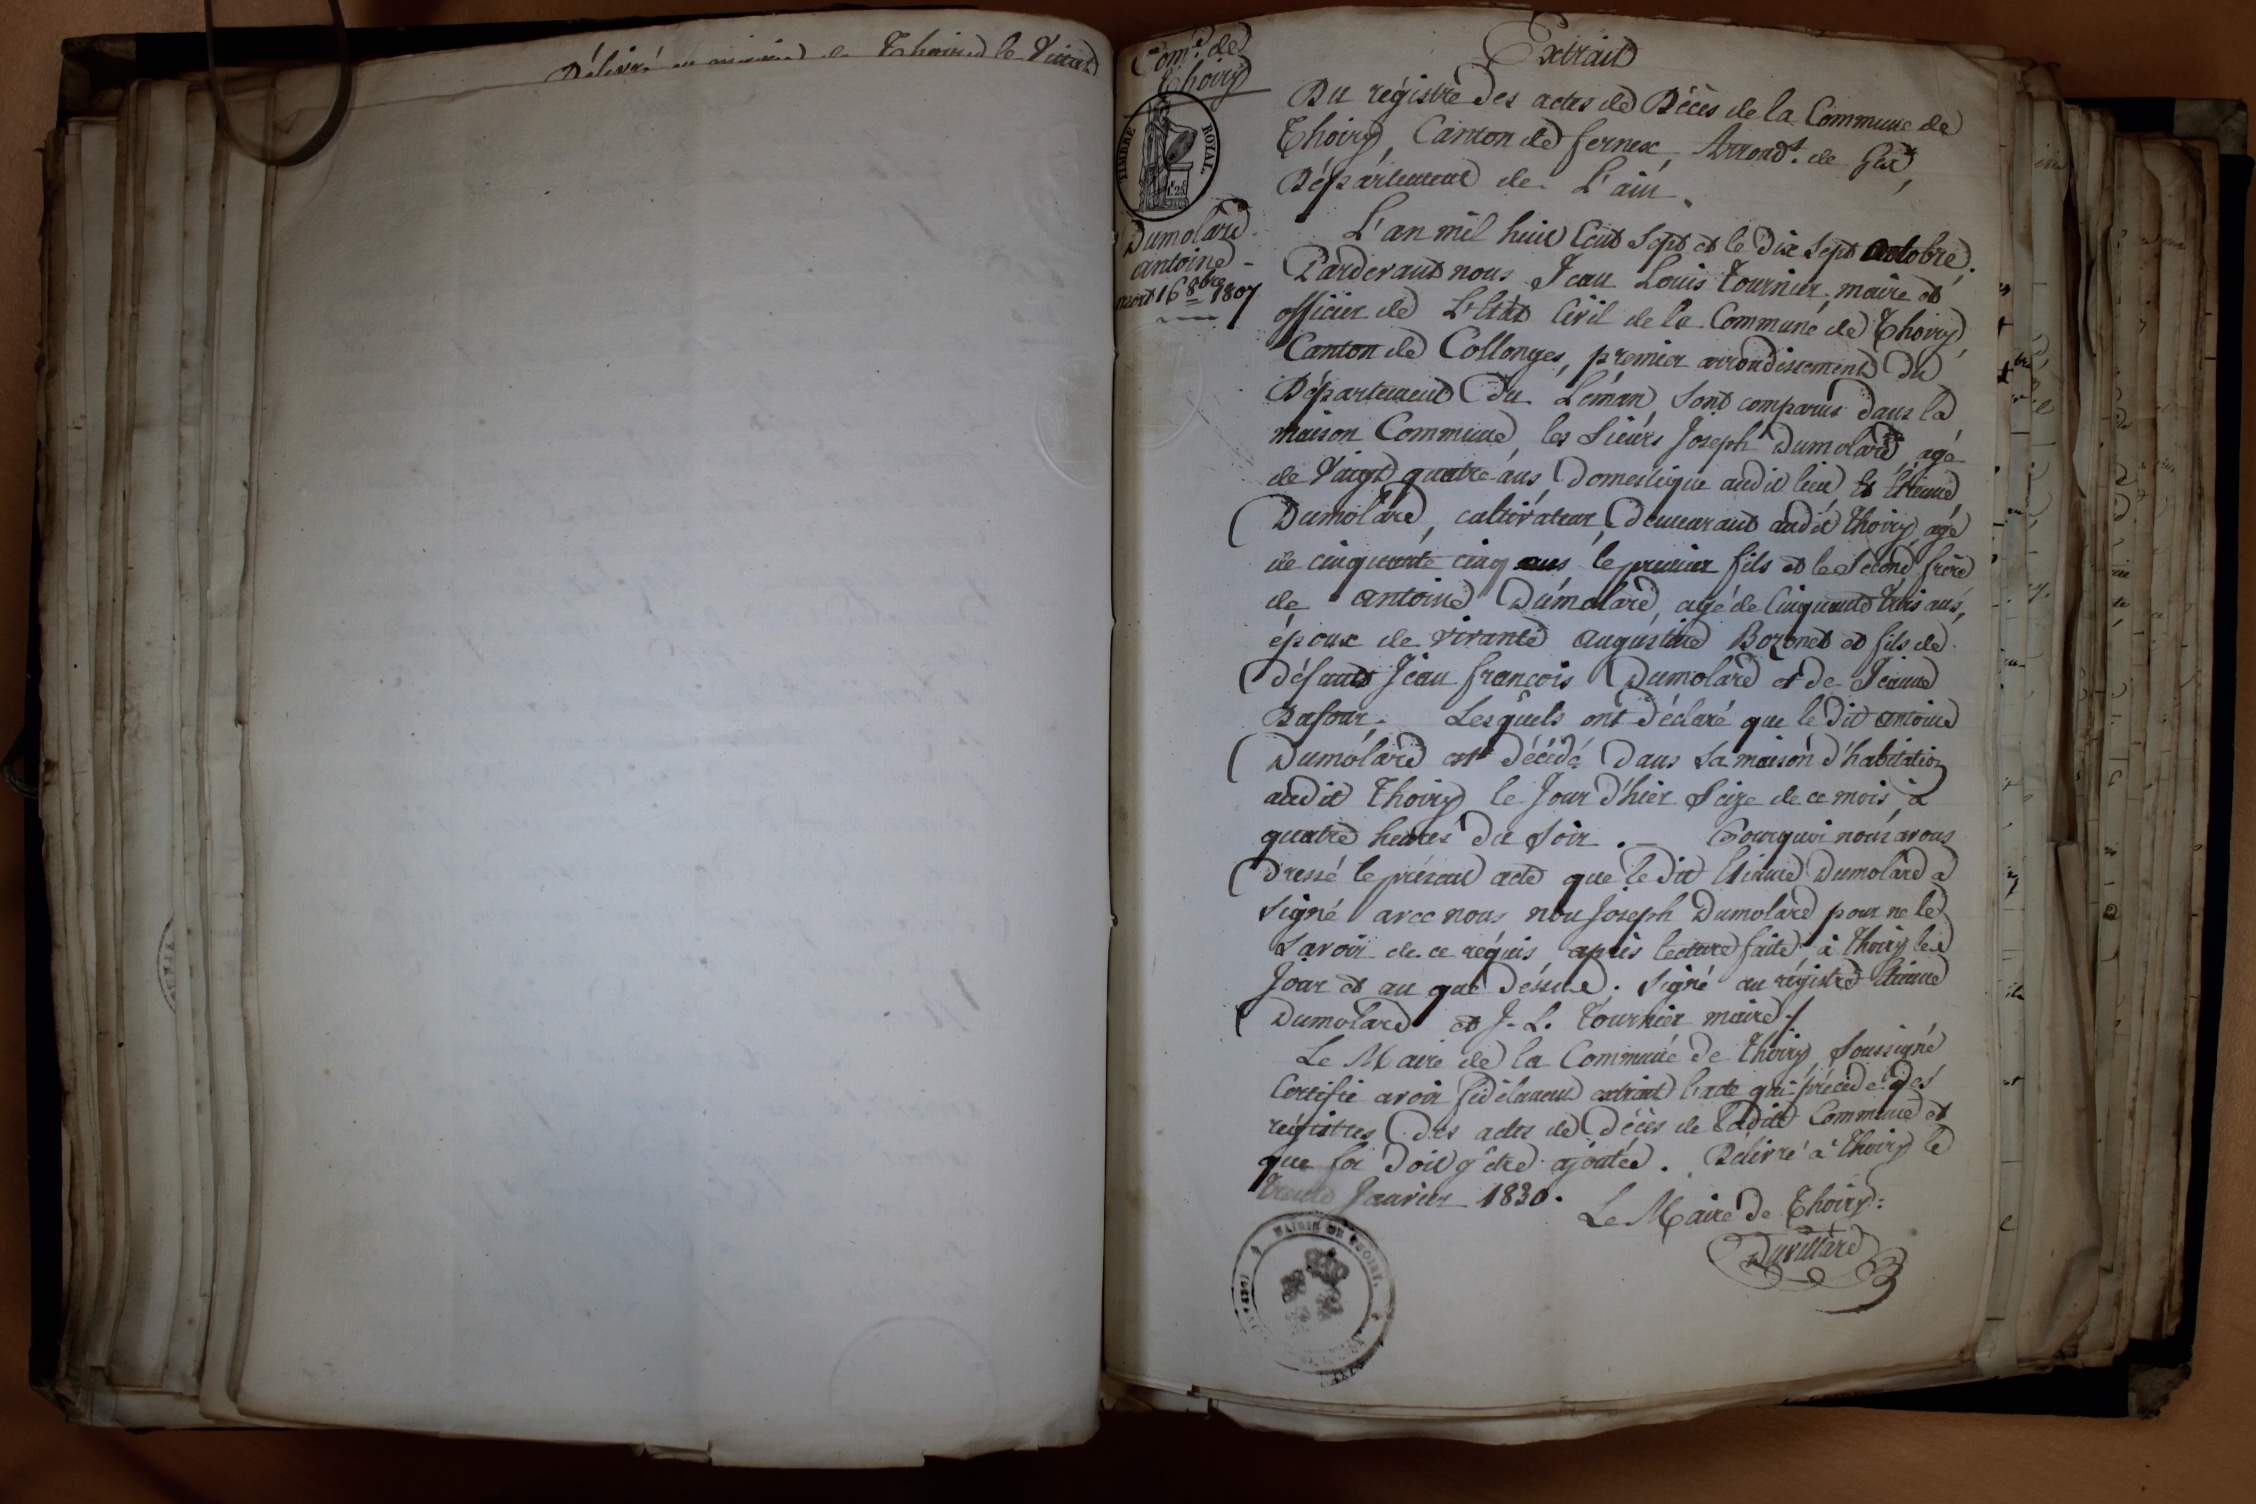 Délivré en mairie de Thoiry le Vingt
Com.e de
Thoiry
TIMBRE ROYAL
1f 25
Dumolard
antoine
mort 16 8bre 1807
Extrait
Du régistre des actes de Décès de la Commune de
Thoiry, Canton de fernex, Arrond.t de Gex,
Département de L'ain.
L'an mil huit Cent Sept et le dix sept octobre.
Pardevant nous Jean Louis Tournier, maire et
officier de L'Etat Civil de la Commune de Thoiry,
Canton de Collonges, premier arrondissement du
Département du Léman sont comparus dans la
maison Commune, les Sieurs Joseph Dumolard, agé
de Vingt quatre ans, domicilié audit lieu et Etienne
Dumolard, cultivateur, demeurant audit thoiry, agé
de cinquante cinq ans le premier fils et le Second frère
de antoine Dumolard, agé de Cinquante trois ans,
époux de vivante augustine Bozonet et fils de
défunts Jean françois Dumolard et de Jeanne
Dafour. Lesquels ont déclaré que le dit antoine
Dumolard est décédé dans sa maison d'habitation
audit Thoiry le Jour d'hier Seize de ce mois à
quatre heures du Soir. Pourquoi nous avons
dressé le présent acte que le dit Etienne Dumolard a
signé avec nous non Joseph Dumolard pour ne le
Savoir de ce requis après lecture faite à thoiry les
Jour et an que dessus. Signé au régistre Etienne
Dumolard et J. L. Tournier maire./
Le Maire de la Commune de thoiry, Soussigné
Certifie avoir fidèlement extrait l'acte qui précède des
régistres des actes de Décès de ladite Commune et
que foi doit y être ajoutée. Délivré à thoiry le
trente Janvier 1830.
Le Maire de Thoiry:
Duvillard
MAIRIE DE THOIRY.